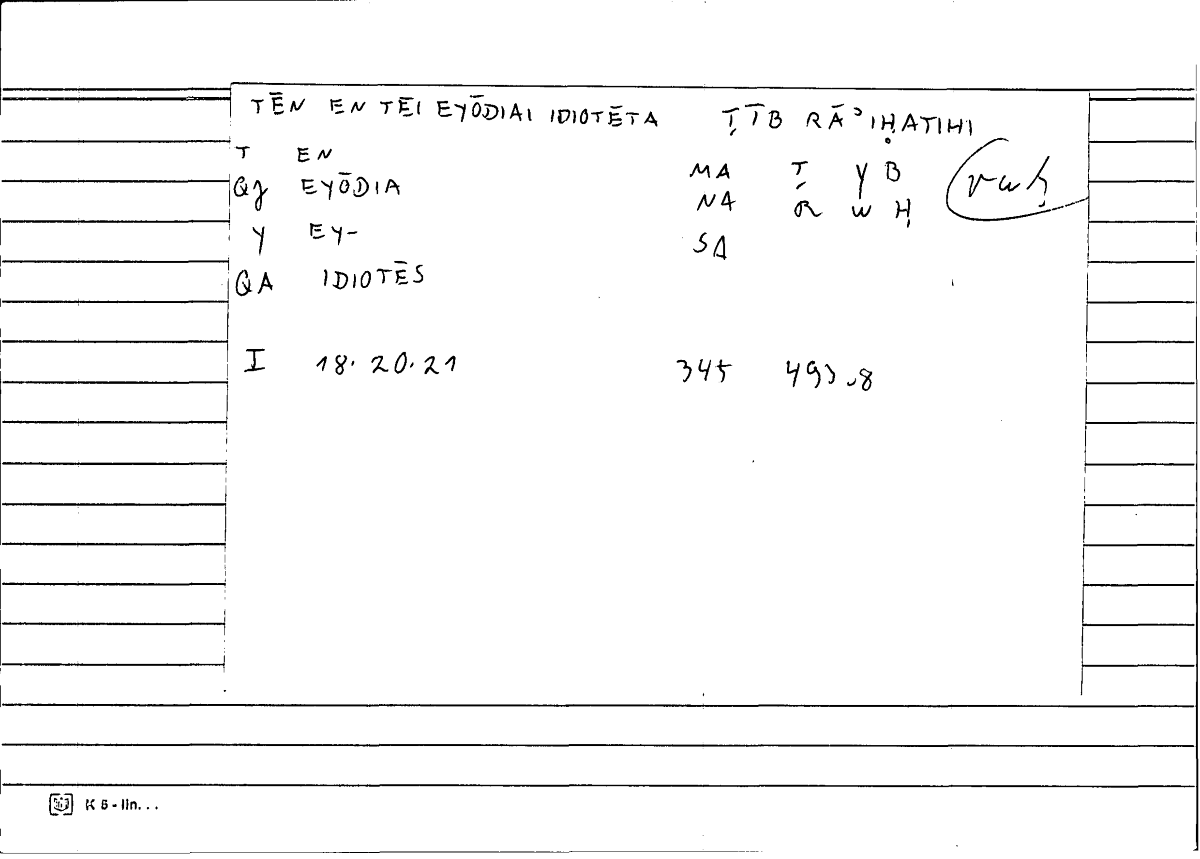 TĒN EN TĒI EYŌDIAI IDIOTĒTA ṬĪB RĀʾIḤATIHI
T EN MA Ṭ Y B
QJ EYŌDIA NA R W Ḥ rwḥ
Y EY- SA
QA IDIOTĒS
I 18. 20. 21 345 493.8
K 5 - lin...